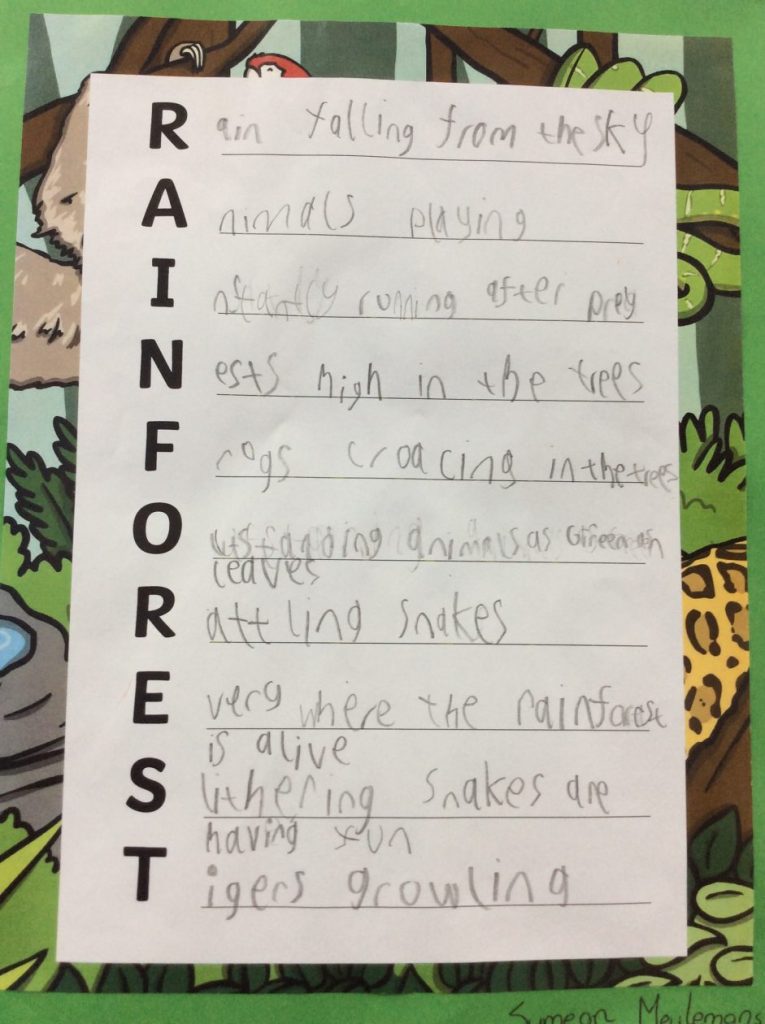 Rain falling from the sky
Animals playing
Instantly running after prey
Nests high in the trees
Frogs croacing in the trees
Outstanding animals as Green as
leaves
Rattling snakes
Everywhere the rainforest
is alive
Slithering snakes are
having fun
Tigers growling
Symeon Meulemans